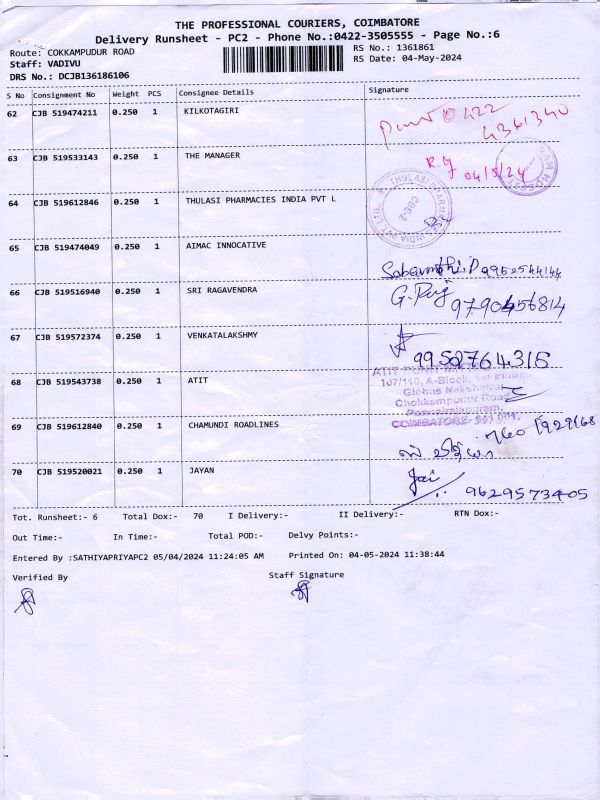 THE PROFESSIONAL COURIERS, COIMBATORE
Delivery Runsheet - PC2 - Phone No.:0422-3505555 - Page No.:6
Route: COKKAMPUDUR ROAD
RS No.: 1361861
Staff: VADIVU
RS Date: 04-May-2024
DRS No.: DCJB136186106
S No Consignment No Weight PCS Consignee Details Signature
62 CJB 519474211 0.250 1 KILKOTAGIRI
0422
4361340
63 CJB 519533143 0.250 1 THE MANAGER
R.g 04/5/24
64 CJB 519612846 0.250 1 THULASI PHARMACIES INDIA PVT L
CBE-2
65 CJB 519474049 0.250 1 AIMAC INNOCATIVE
9952544144
66 CJB 519516940 0.250 1 SRI RAGAVENDRA
G. Raj
9790456814
67 CJB 519572374 0.250 1 VENKATALAKSHMY
9952764316
68 CJB 519543738 0.250 1 ATIT
107/110, A-Block, 1st Floor,
Chokkampudur Road
COIMBATORE
69 CJB 519612840 0.250 1 CHAMUNDI ROADLINES
70 CJB 519520021 0.250 1 JAYAN
Jai
9629573405
Tot. Runsheet:- 6 Total Dox:- 70 I Delivery:- II Delivery:- RTN Dox:-
Out Time:- In Time:- Total POD:- Delvy Points:-
Entered By :SATHIYAPRIYAPC2 05/04/2024 11:24:05 AM Printed On: 04-05-2024 11:38:44
Verified By Staff Signature